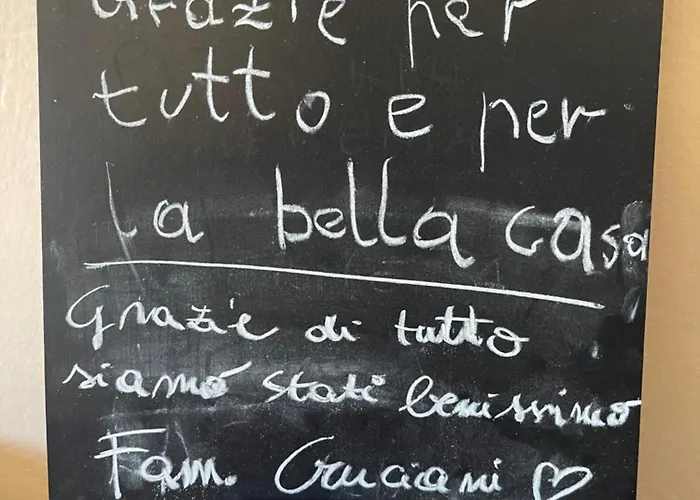 Grazie per
tutto e per
la bella casa
Grazie di tutto
siamo stati benissimo
Fam. Cruciani ♡